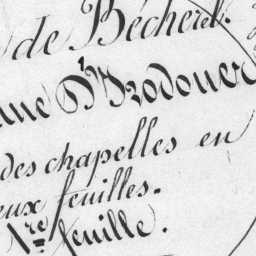 de Bécherel.
une d'Yrodouer
des chapelles en
eux feuilles.
1re feuille.